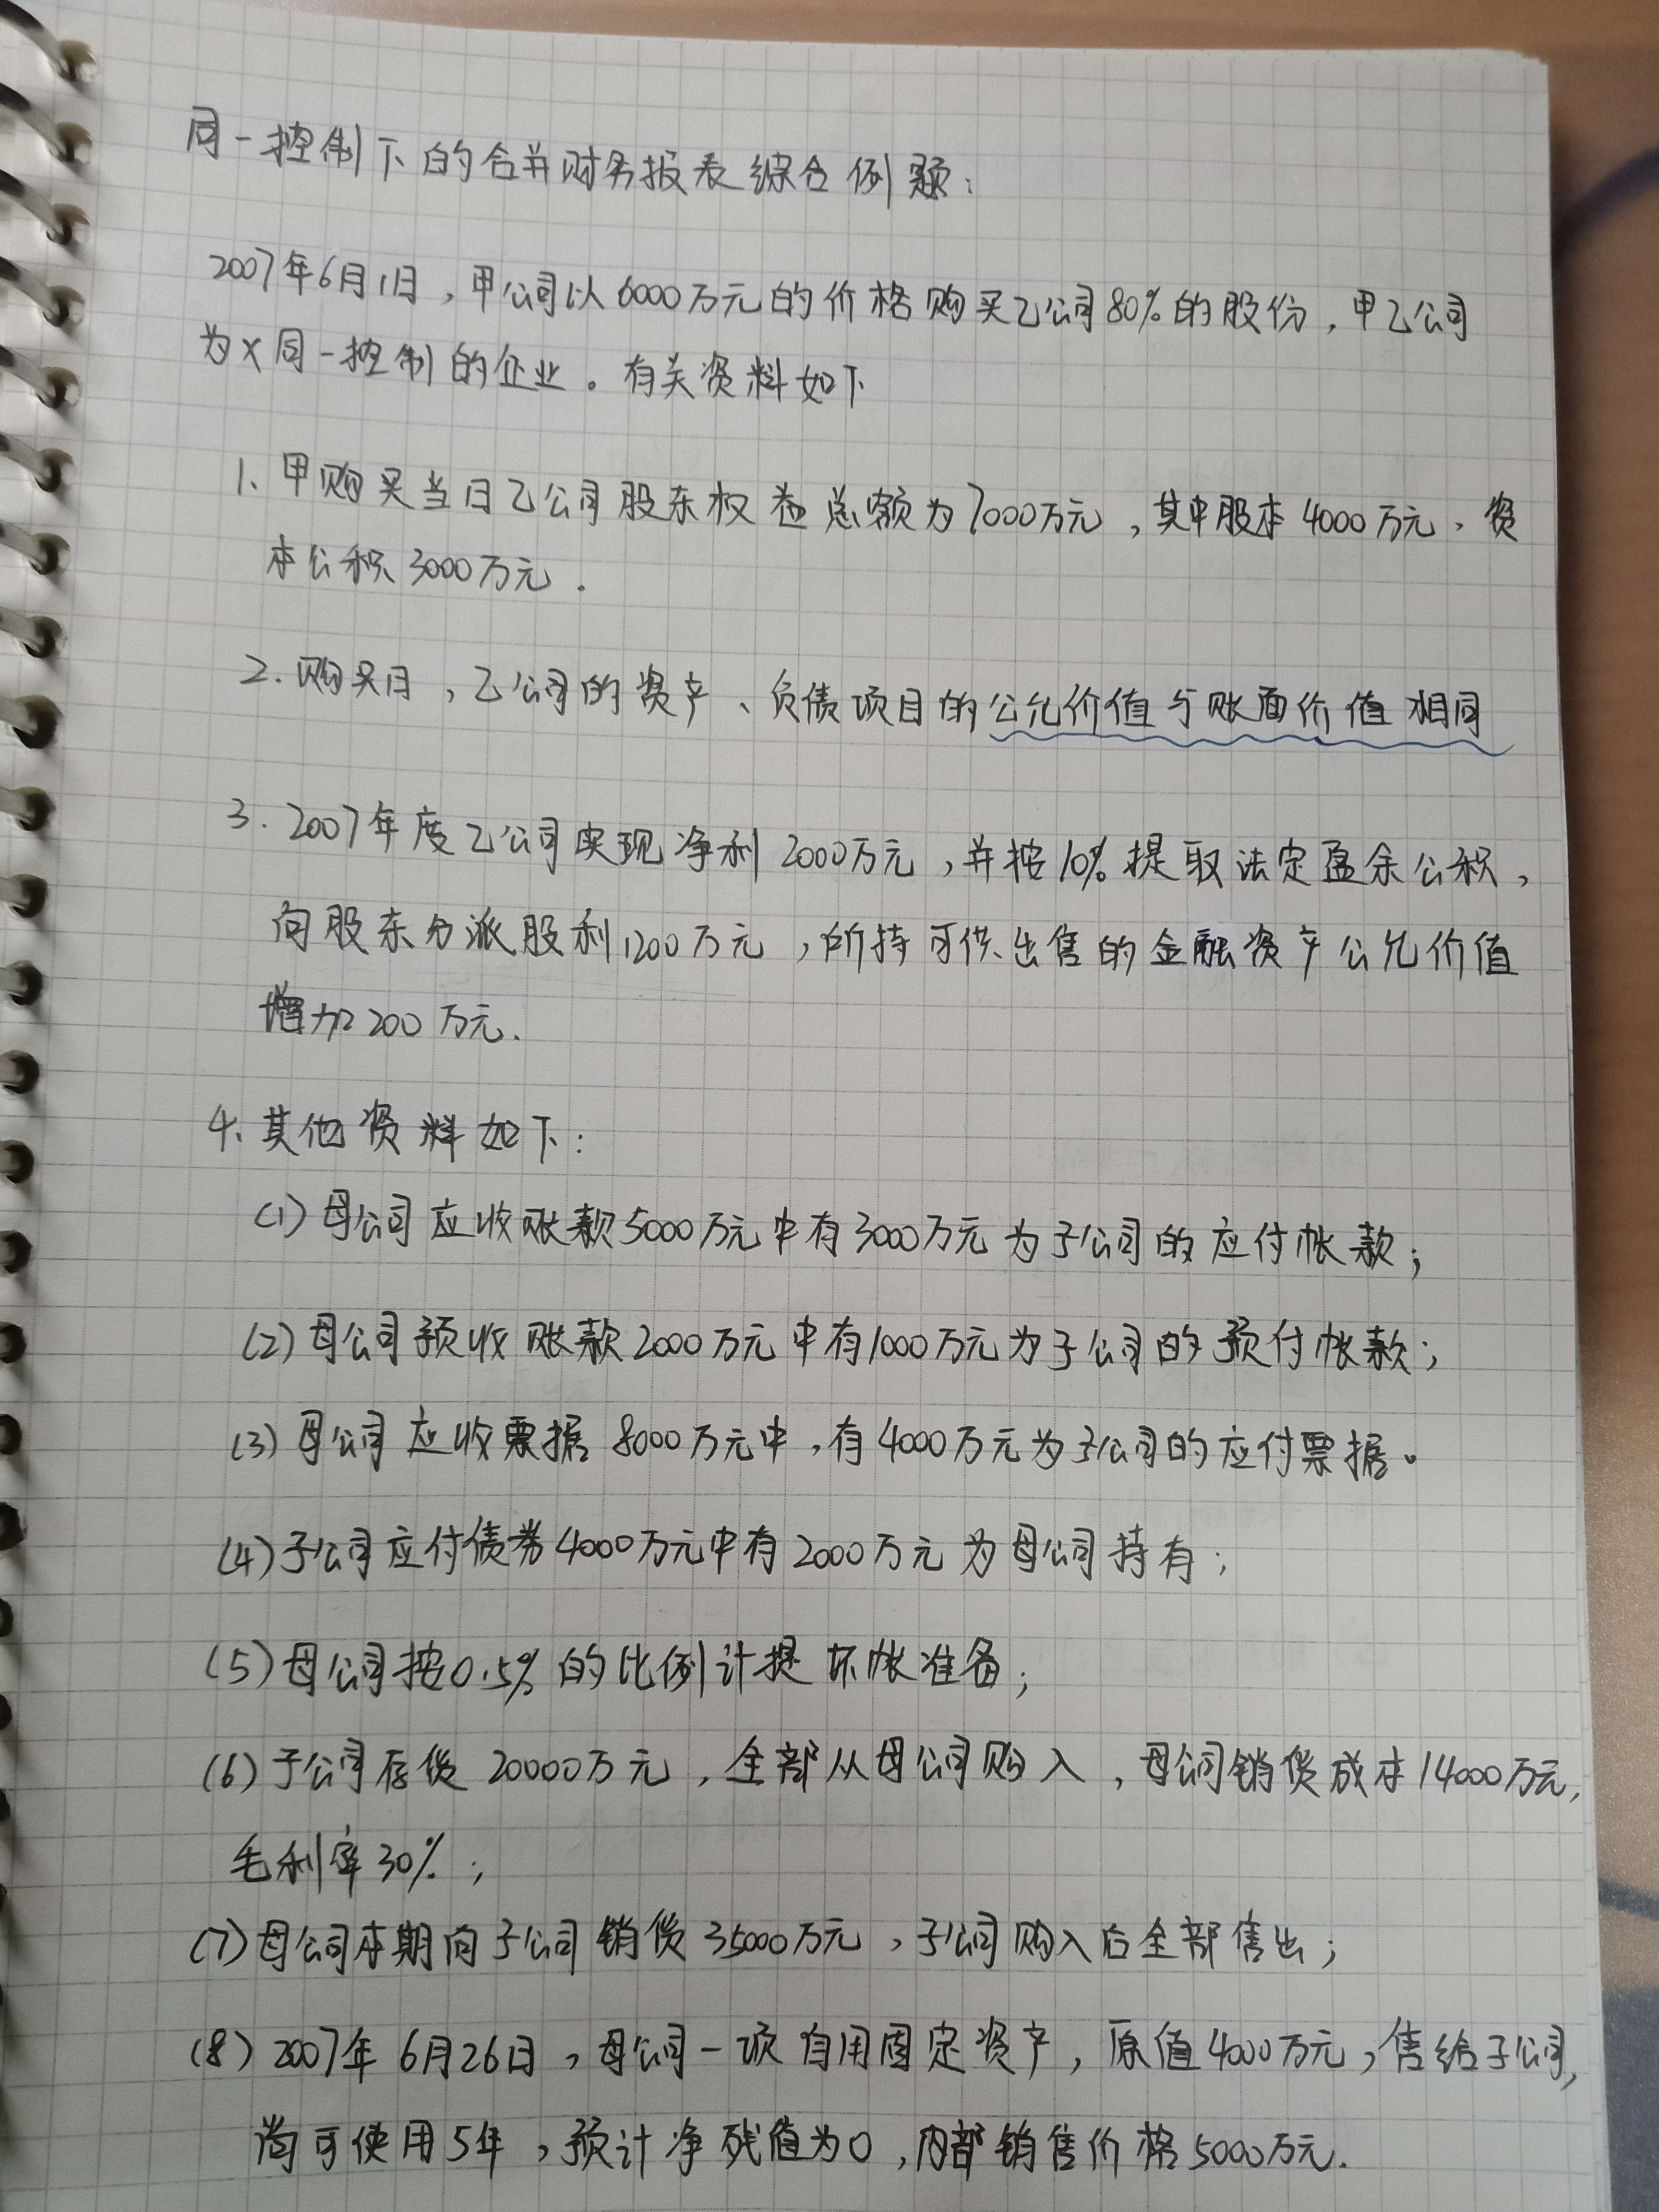 同一控制下的合并财务报表综合例题：
2007年6月1日，甲公司以6000万元的价格购买乙公司80%的股份，甲乙公司
为X同一控制的企业。有关资料如下
1、甲购买当日乙公司股东权益总额为7000万元，其中股本4000万元，资
本公积3000万元.
2.购买日，乙公司的资产、负债项目的公允价值与账面价值相同
3.2007年度乙公司实现净利2000万元，并按10%提取法定盈余公积，
向股东分派股利1200万元，所持可供出售的金融资产公允价值
增加200万元.
4、其他资料如下：
(1)母公司应收账款5000万元中有3000万元为子公司的应付帐款；
(2)母公司预收账款2000万元中有1000万元为子公司的预付帐款；
(3)母公司应收票据8000万元中，有4000万元为子公司的应付票据。
(4)子公司应付债券4000万元中有2000万元为母公司持有；
(5)母公司按0.5%的比例计提坏帐准备；
(6)子公司存货20000万元，全部从母公司购入，母公司销货成本14000万元，
毛利率30%；
(7)母公司本期向子公司销货35000万元，子公司购入后全部售出；
(8)2007年6月26日，母公司一项自用固定资产，原值4000万元，售给子公司，
尚可使用5年，预计净残值为0，内部销售价格5000万元.